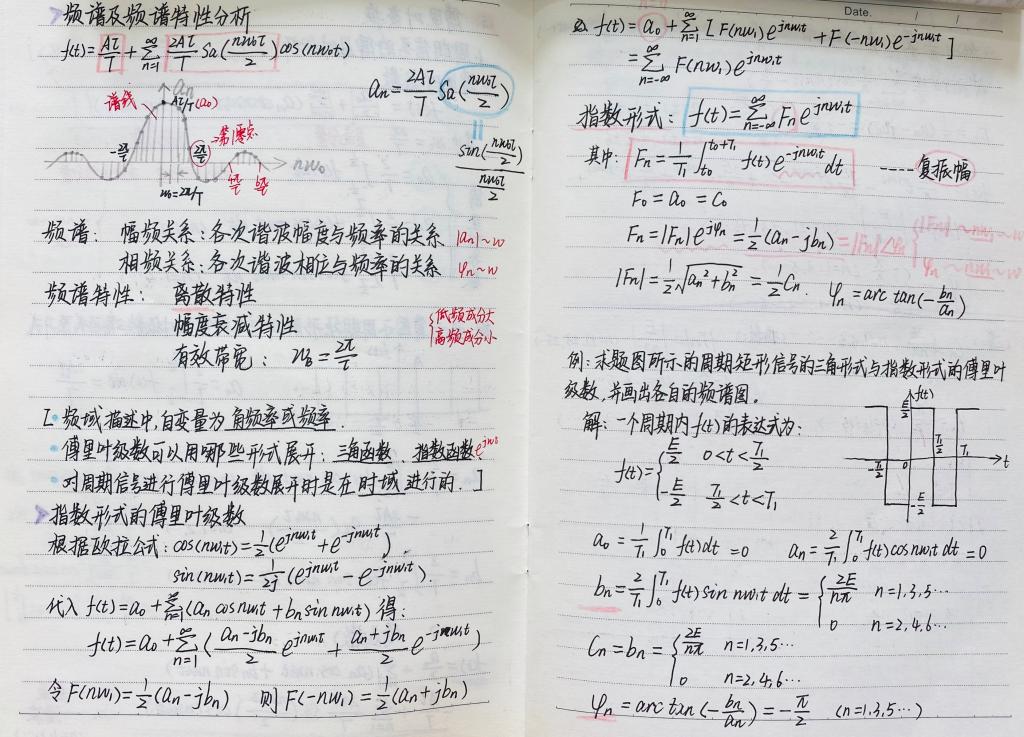 频谱及频谱特性分析
f(t)=Aτ/T+∑_{n=1}^{∞} 2Aτ/T Sa(nω₀τ/2)cos(nω₀t)
aₙ=2Aτ/T Sa(nω₀τ/2)
‖
sin(nω₀τ/2)/(nω₀τ/2)
aₙ
谱线
Aτ/T(a₀)
第1零点
-2π/τ
2π/τ
nω₀
4π/τ
6π/τ
ω₀=2π/T
频谱: 幅频关系:各次谐波幅度与频率的关系 |aₙ|~ω
相频关系:各次谐波相位与频率的关系 φₙ~ω
频谱特性: 离散特性
幅度衰减特性 {低频成分大
高频成分小
有效带宽: ω_B=2π/τ
[·频域描述中,自变量为角频率或频率.
·傅里叶级数可以用哪些形式展开: 三角函数、指数函数e^{jωt}
·对周期信号进行傅里叶级数展开时是在时域进行的.]
指数形式的傅里叶级数
根据欧拉公式: cos(nω₁t)=1/2(e^{jnω₁t}+e^{-jnω₁t})
sin(nω₁t)=1/2j(e^{jnω₁t}-e^{-jnω₁t}).
代入 f(t)=a₀+∑_{n=1}^{∞}(aₙcosnω₁t+bₙsinnω₁t) 得:
f(t)=a₀+∑_{n=1}^{∞}((aₙ-jbₙ)/2 e^{jnω₁t}+(aₙ+jbₙ)/2 e^{-jnω₁t})
令F(nω₁)=1/2(aₙ-jbₙ) 则F(-nω₁)=1/2(aₙ+jbₙ)
Date.
f(t)=a₀+∑_{n=1}^{∞}[F(nω₁)e^{jnω₁t}+F(-nω₁)e^{-jnω₁t}]
=∑_{n=-∞}^{∞}F(nω₁)e^{jnω₁t}
指数形式: f(t)=∑_{n=-∞}^{∞}Fₙe^{jnω₁t}
其中: Fₙ=1/T₁∫_{t₀}^{t₀+T₁}f(t)e^{-jnω₁t}dt ----复振幅
F₀=a₀=C₀
Fₙ=|Fₙ|e^{jφₙ}=1/2(aₙ-jbₙ)=|Fₙ|∠φₙ {|Fₙ|~nω₁~ω
φₙ~nω₁~ω
|Fₙ|=1/2√(aₙ²+bₙ²)=1/2Cₙ. φₙ=arctan(-bₙ/aₙ)
例:求题图所示的周期矩形信号的三角形式与指数形式的傅里叶
级数,并画出各自的频谱图.
解:一个周期内f(t)的表达式为:
f(t)={E/2 0<t<T₁/2
-E/2 T₁/2<t<T₁
f(t)
E/2
-T₁/2
0
T₁/2
T₁
t
-E/2
a₀=1/T₁∫₀^{T₁}f(t)dt=0 aₙ=2/T₁∫₀^{T₁}f(t)cosnω₁tdt=0
bₙ=2/T₁∫₀^{T₁}f(t)sinnω₁tdt={2E/nπ n=1,3,5···
0 n=2,4,6···
Cₙ=bₙ={2E/nπ n=1,3,5···
0 n=2,4,6···
φₙ=arctan(-bₙ/aₙ)=-π/2 (n=1,3,5···)